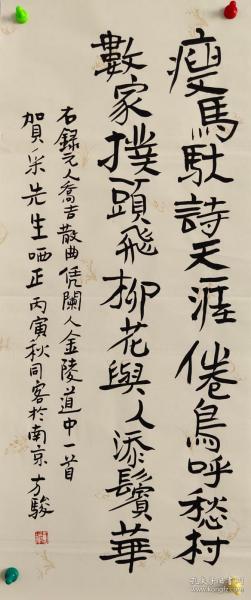 瘦馬馱詩天涯倦鳥呼愁村
數家撲頭飛柳花與人添鬢華
右錄元人喬吉散曲凭闌人金陵道中一首
賀采先生哂正丙寅秋同客於南京方駿